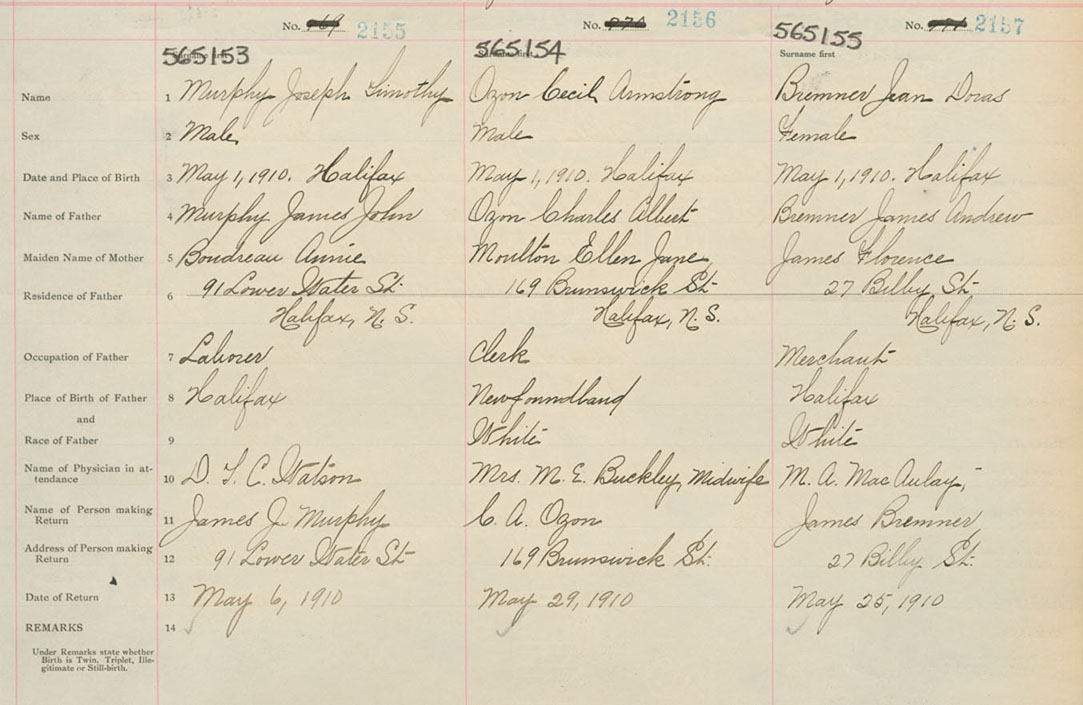 No. 769 2155 No. 770 2156 No. 771 2157
565153 565154 565155
Surname first Surname first Surname first
Name 1 Murphy Joseph Timothy Ozon Cecil Armstrong Bremner Jean Doras
Sex 2 Male Male Female
Date and Place of Birth 3 May 1, 1910. Halifax May 1, 1910. Halifax May 1, 1910. Halifax
Name of Father 4 Murphy James John Ozon Charles Albert Bremner James Andrew
Maiden Name of Mother 5 Boudreau Annie Moulton Ellen Jane James Florence
Residence of Father 6 91 Lower Water St. 169 Brunswick St. 27 Bilby St.
Halifax, N. S. Halifax, N. S. Halifax, N. S.
Occupation of Father 7 Laborer Clerk Merchant
Place of Birth of Father 8 Halifax Newfoundland Halifax
and
Race of Father 9 White White
Name of Physician in at-
tendance 10 D. T. C. Watson Mrs. M. E. Buckley, Midwife M. A. MacAulay,
Name of Person making
Return 11 James J. Murphy C. A. Ozon James Bremner
Address of Person making
Return 12 91 Lower Water St. 169 Brunswick St. 27 Bilby St.
Date of Return 13 May 6, 1910 May 29, 1910 May 25, 1910
REMARKS 14
Under Remarks state whether
Birth is Twin, Triplet, Ille-
gitimate or Still-birth.